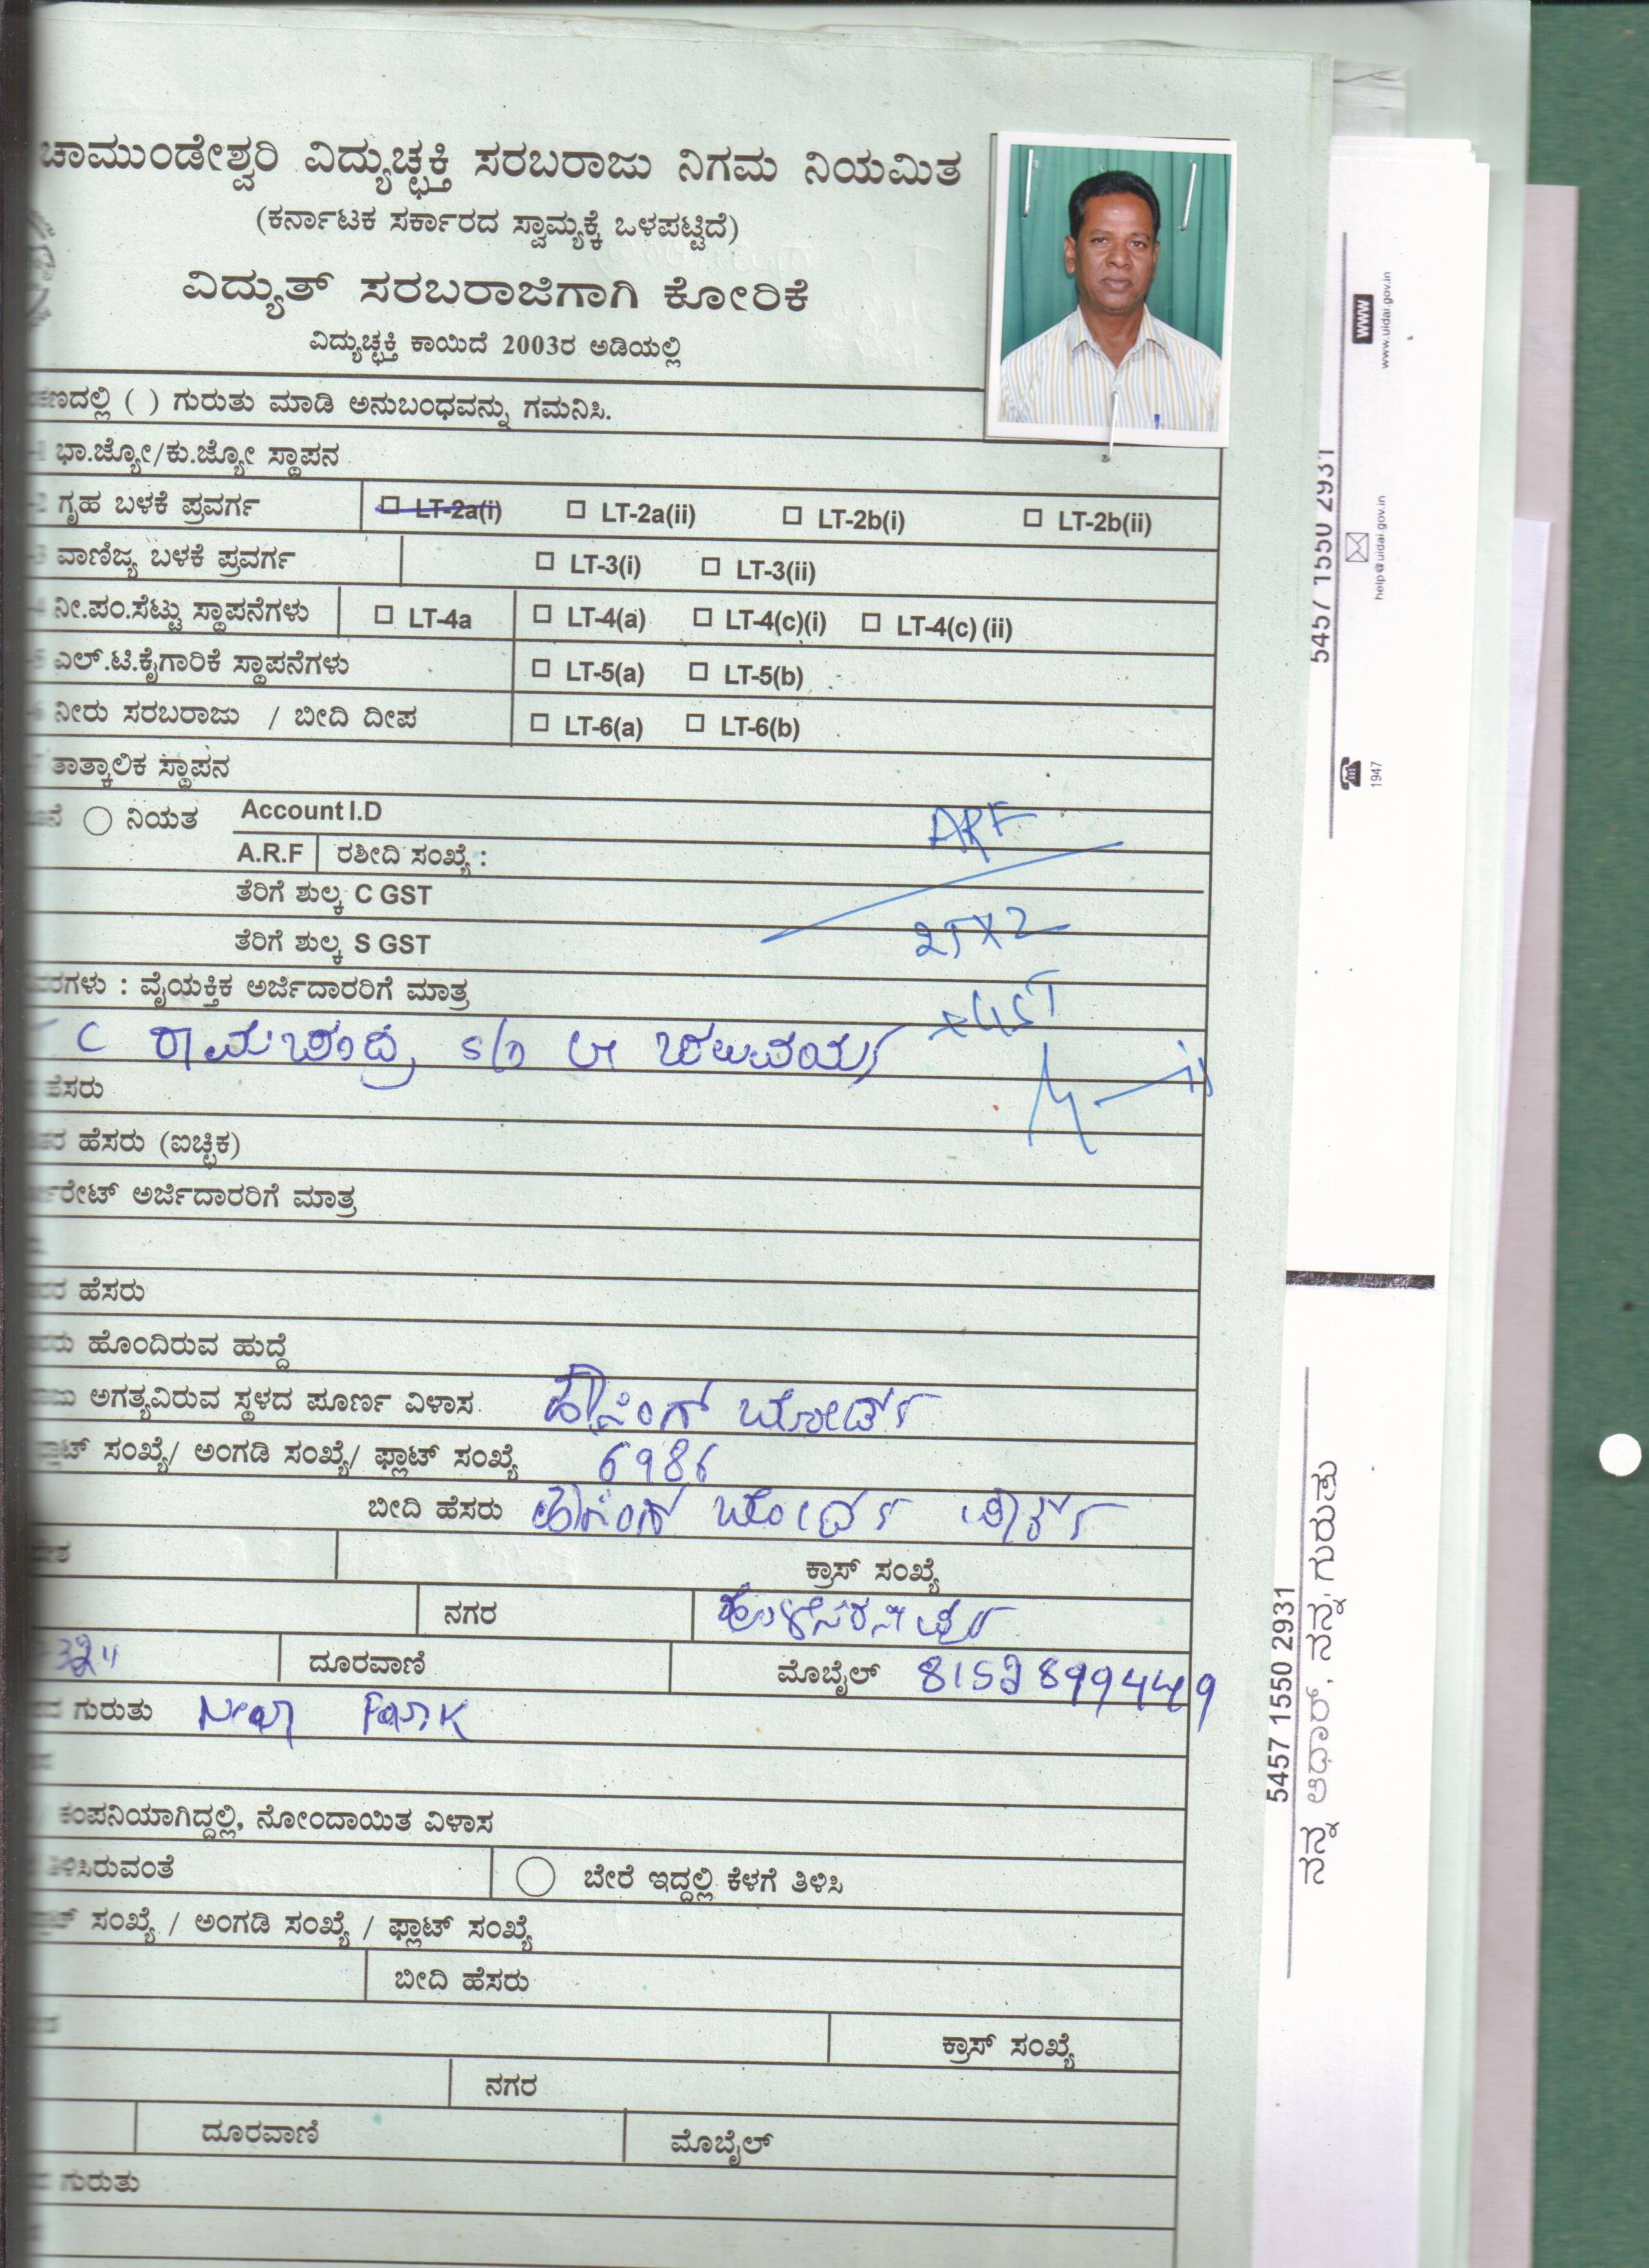 ಚಾಮುಂಡೇಶ್ವರಿ ವಿದ್ಯುಚ್ಛಕ್ತಿ ಸರಬರಾಜು ನಿಗಮ ನಿಯಮಿತ
(ಕರ್ನಾಟಕ ಸರ್ಕಾರದ ಸ್ವಾಮ್ಯಕ್ಕೆ ಒಳಪಟ್ಟಿದೆ)
ವಿದ್ಯುತ್ ಸರಬರಾಜಿಗಾಗಿ ಕೋರಿಕೆ
ವಿದ್ಯುಚ್ಛಕ್ತಿ ಕಾಯಿದೆ 2003ರ ಅಡಿಯಲ್ಲಿ
( ) ಗುರುತು ಮಾಡಿ ಅನುಬಂಧವನ್ನು ಗಮನಿಸಿ.
ಭಾ.ಜ್ಯೋ/ಕು.ಜ್ಯೋ ಸ್ಥಾಪನ
ಗೃಹ ಬಳಕೆ ಪ್ರವರ್ಗ LT-2a(i) LT-2a(ii) LT-2b(i) LT-2b(ii)
ವಾಣಿಜ್ಯ ಬಳಕೆ ಪ್ರವರ್ಗ LT-3(i) LT-3(ii)
ನೀ.ಪಂ.ಸೆಟ್ಟು ಸ್ಥಾಪನೆಗಳು LT-4a LT-4(a) LT-4(c)(i) LT-4(c) (ii)
ಎಲ್.ಟಿ.ಕೈಗಾರಿಕೆ ಸ್ಥಾಪನೆಗಳು LT-5(a) LT-5(b)
ನೀರು ಸರಬರಾಜು / ಬೀದಿ ದೀಪ LT-6(a) LT-6(b)
ತಾತ್ಕಾಲಿಕ ಸ್ಥಾಪನ
ನಿಯತ Account I.D
ARF
A.R.F ರಶೀದಿ ಸಂಖ್ಯೆ :
ತೆರಿಗೆ ಶುಲ್ಕ C GST
ತೆರಿಗೆ ಶುಲ್ಕ S GST
: ವೈಯಕ್ತಿಕ ಅರ್ಜಿದಾರರಿಗೆ ಮಾತ್ರ
C ರಾಮಚಂದ್ರ s/o
ಹೆಸರು
ಹೆಸರು (ಐಚ್ಛಿಕ)
ಅರ್ಜಿದಾರರಿಗೆ ಮಾತ್ರ
ಹೆಸರು
ಹೊಂದಿರುವ ಹುದ್ದೆ
ಅಗತ್ಯವಿರುವ ಸ್ಥಳದ ಪೂರ್ಣ ವಿಳಾಸ ಹೌಸಿಂಗ್ ಬೋರ್ಡ್
ಸಂಖ್ಯೆ/ ಅಂಗಡಿ ಸಂಖ್ಯೆ/ ಫ್ಲಾಟ್ ಸಂಖ್ಯೆ 6986
ಬೀದಿ ಹೆಸರು ಹೌಸಿಂಗ್ ಬೋರ್ಡ್ ಪಾರ್ಕ್
ಕ್ರಾಸ್ ಸಂಖ್ಯೆ
ನಗರ
ದೂರವಾಣಿ ಮೊಬೈಲ್
ಗುರುತು Near Park
ಕಂಪನಿಯಾಗಿದ್ದಲ್ಲಿ, ನೋಂದಾಯಿತ ವಿಳಾಸ
ತಿಳಿಸಿರುವಂತೆ ಬೇರೆ ಇದ್ದಲ್ಲಿ ಕೆಳಗೆ ತಿಳಿಸಿ
ಸಂಖ್ಯೆ / ಅಂಗಡಿ ಸಂಖ್ಯೆ / ಫ್ಲಾಟ್ ಸಂಖ್ಯೆ
ಬೀದಿ ಹೆಸರು
ಕ್ರಾಸ್ ಸಂಖ್ಯೆ
ನಗರ
ದೂರವಾಣಿ ಮೊಬೈಲ್
ಗುರುತು
5457 1550 2931
1947
help@uidai.gov.in
WWW
www.uidai.gov.in
5457 1550 2931
ನನ್ನ ಆಧಾರ್, ನನ್ನ ಗುರುತು